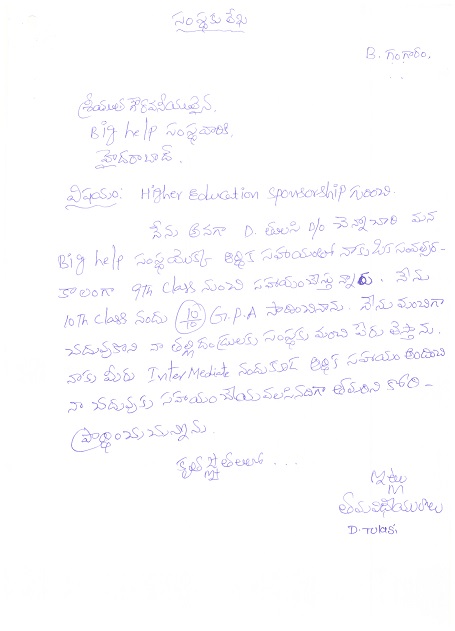 సంస్థకు లేఖ
B. గంగారం,
శ్రీయుత గౌరవనీయులైన,
Big help సంస్థవారికి,
హైదరాబాద్.
విషయం: Higher Education sponsorship గురించి.
నేను అనగా D. తులసి D/o చిన్నాబారి మన
Big help సంస్థ యొక్క ఆర్థిక సహాయంలో నాకు ఒక సంవత్సర-
కాలంగా 9th Class నుంచి సహాయంచేస్తున్నారు. నేను
10th Class నందు 10/10 G.P.A సాధించినాను. నేను మంచిగా
చదువుకొని నా తల్లిదండ్రులకు సంస్థకు మంచి పేరు తెస్తాను.
నాకు మీరు InterMediate నందుకూడ ఆర్థిక సహాయం అందించి
నా చదువుకు సహాయంచేయవలసినదిగా తమరిని కోరి-
ప్రార్థించుచున్నాను.
కృతజ్ఞతలతో ...
ఇట్లు
తమ విధేయురాలు
D. Tulasi